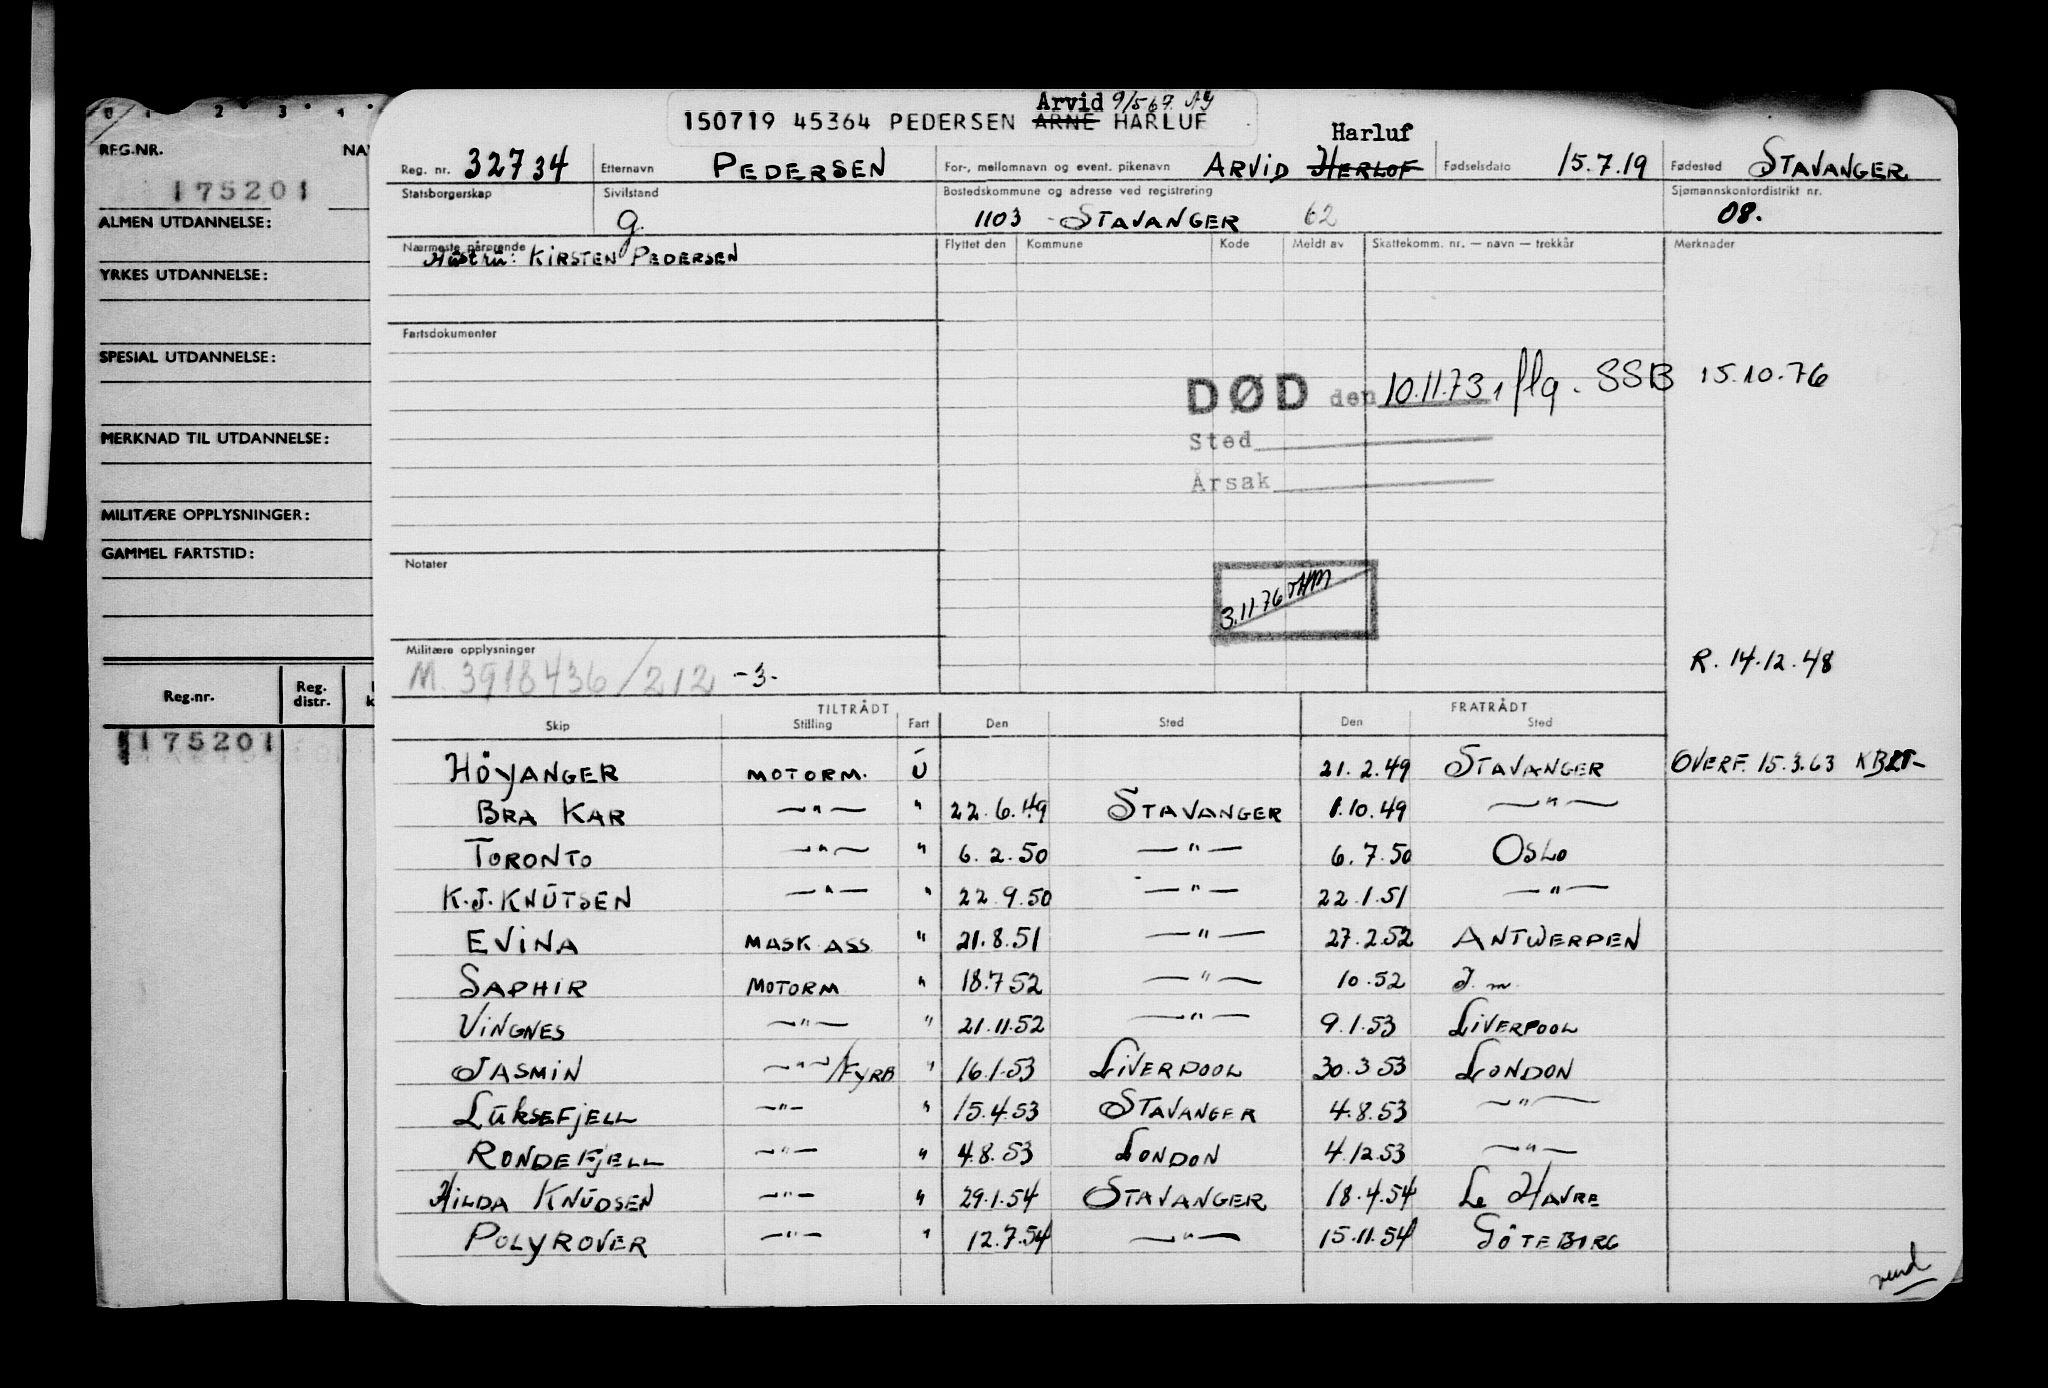 0 1 2 3 4
REG.NR. NA
175201
ALMEN UTDANNELSE:
YRKES UTDANNELSE:
SPESIAL UTDANNELSE:
MERKNAD TIL UTDANNELSE:
MILITÆRE OPPLYSNINGER:
GAMMEL FARTSTID:
Reg.nr. Reg. distr. k
175201
Arvid 9/5 69
150719 45364 PEDERSEN ARNE HARLUF
Harluf
Reg. nr. 32734 Etternavn PEDERSEN For-, mellomnavn og event. pikenavn ARVID HERLOF Fødselsdato 15.7.19 Fødested STAVANGER
Statsborgerskap Sivilstand g. Bostedskommune og adresse ved registrering 1103 - STAVANGER 62 Sjømannskontordistrikt nr. 08.
Nærmeste pårørende Flyttet den Kommune Kode Meldt av Skattekomm. nr. — navn — trekkår Merknader
Hustru: KIRSTEN PEDERSEN
Fartsdokumenter
DØD den 10.11.73, flg. SSB 15.10.76
Sted
Årsak
Notater
3.11.76
Militære opplysninger
M. 3918436/212 -3-
R. 14.12.48
TILTRÅDT FRATRÅDT
Skip Stilling Fart Den Sted Den Sted
HÖYANGER MOTORM. U 21.2.49 STAVANGER OVERF. 15.3.63
BRA KAR —"— " 22.6.49 STAVANGER 1.10.49 —"—
TORONTO —"— " 6.2.50 —"— 6.7.50 OSLO
K.J. KNUTSEN —"— " 22.9.50 —"— 22.1.51 —"—
EVINA MASK ASS " 21.8.51 —"— 27.2.52 ANTWERPEN
SAPHIR MOTORM " 18.7 52 —"— 10.52 J. m.
VINGNES —"— " 21.11.52 —"— 9.1.53 LIVERPOOL
JASMIN —"—/FYRB " 16.1.53 LIVERPOOL 30.3 53 LONDON
LUKSEFJELL —"— " 15.4.53 STAVANGER 4.8.53 —"—
RONDEFJELL —"— " 4.8.53 LONDON 4.12.53 —"—
HILDA KNUDSEN —"— " 29.1.54 STAVANGER 18.4.54 LE HAVRE
POLYROVER —"— " 12.7.54 —"— 15.11.54 GÖTEBORG
vend